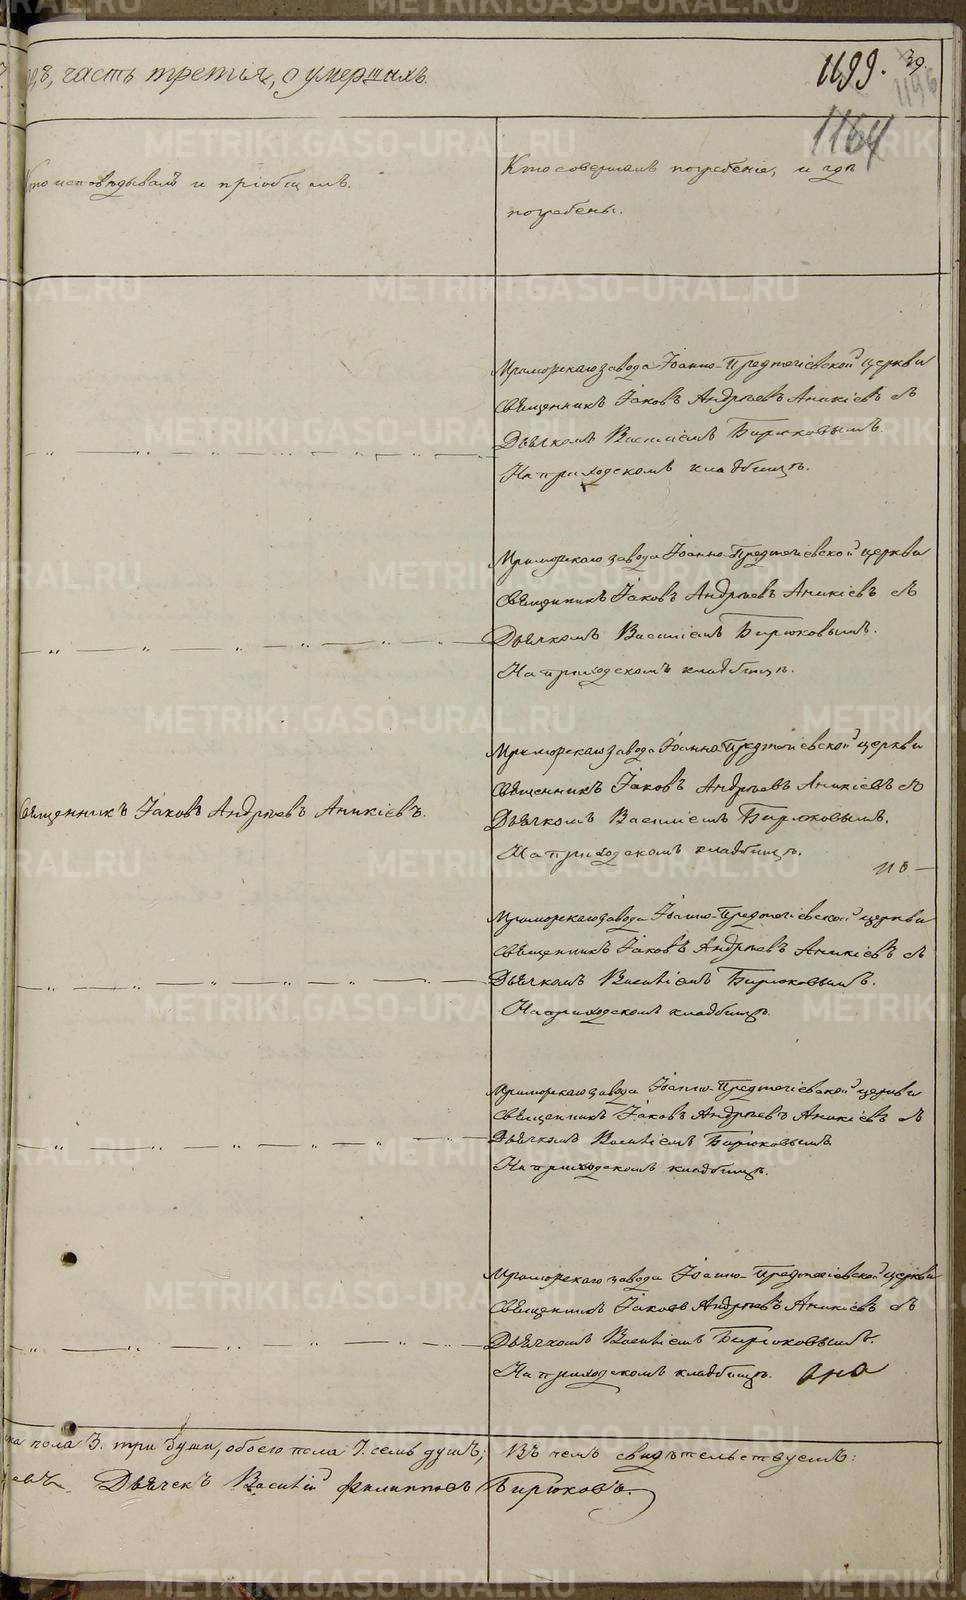 часть третія, о умершихъ.
1199.
39.
1196
1164
Кто исповѣдывалъ и пріобщалъ.
Кто совершалъ погребеніе, и гдѣ
погребены.
завода Іоанно-Предтечіевской церкви
Священникъ Іаковъ Андрѣевъ Аникіевъ съ
Дьячкомъ Василіемъ Бирюковымъ.
На приходскомъ кладбищѣ.
завода Іоанно-Предтечіевской церкви
Священникъ Іаковъ Андрѣевъ Аникіевъ съ
Дьячкомъ Василіемъ Бирюковымъ.
На приходскомъ кладбищѣ.
завода Іоанно-Предтечіевской церкви
Священникъ Іаковъ Андрѣевъ Аникіевъ съ
Священникъ Іаковъ Андрѣевъ Аникіевъ.
Дьячкомъ Василіемъ Бирюковымъ.
На приходскомъ кладбищѣ.
завода Іоанно-Предтечіевской церкви
Священникъ Іаковъ Андрѣевъ Аникіевъ съ
Дьячкомъ Василіемъ Бирюковымъ.
На приходскомъ кладбищѣ.
завода Іоанно-Предтечіевской церкви
Священникъ Іаковъ Андрѣевъ Аникіевъ съ
Дьячкомъ Василіемъ Бирюковымъ
На приходскомъ кладбищѣ.
завода Іоанно-Предтечіевской церкви
Священникъ Іаковъ Андрѣевъ Аникіевъ съ
Дьячкомъ Василіемъ Бирюковымъ.
На приходскомъ кладбищѣ.
пола 3. три души, обоего пола 7. семь душъ; Въ чемъ свидѣтельствуемъ:
Дьячекъ Василій Филипповъ Бирюковъ.
METRIKI.GASO-URAL.RU